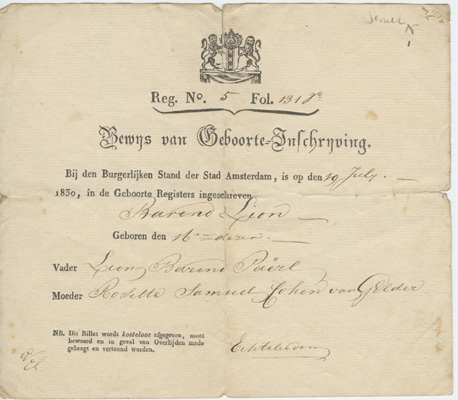 Reg. No. 5 Fol. 131 Ve
Bewys van Geboorte-Inschryving.
Bij den Burgerlijken Stand der Stad Amsterdam, is op den 19 July
1830, in de Geboorte Registers ingeschreven
Barend Lion
Geboren den 16en dezer
Vader Leon Barend Paërl
Moeder Rosette Samuel Cohen van Gelder
NB. Dit Billet wordt kosteloos afgegeven, moet
bewaard en in geval van Overlijden mede
gebragt en vertoond worden.
Echtelieden